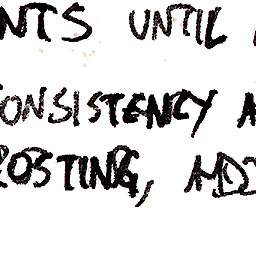 NTS UNTIL
CONSISTENCY A
ROSTING, ADD